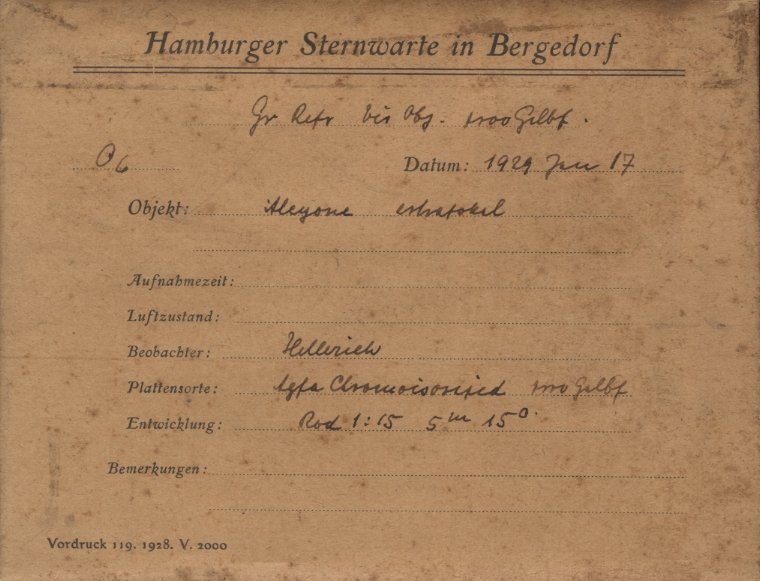 Hamburger Sternwarte in Bergedorf
Gr Refr vis Obj. Gelbf.
O6 Datum: 1929 Jan 17
Objekt: Alcyone extrafokal
Aufnahmezeit:
Luftzustand:
Beobachter: Hellerich
Plattensorte: Agfa Chromoisorapid Gelbf
Entwicklung: Rod 1:15 5m 15°.
Bemerkungen:
Vordruck 119. 1928. V. 2000